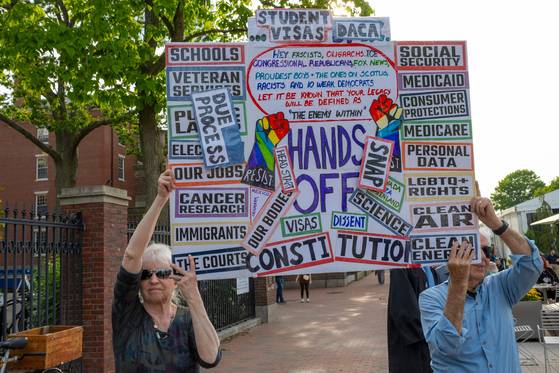 STUDENT
... VISAS
DACA...
SCHOOLS
VETERAN
SERVICES
ELEC
OUR JOBS
CANCER
RESEARCH
IMMIGRANTS
THE COURTS
DUE
PROCESS
HEY FASCISTS, OLIGARCHS, ICE
CONGRESSIONAL REPUBLICANS, FOX NEWS
PROUDEST BOYS + THE ONES ON SCOTUS,
RACISTS AND 10 WEAK DEMOCRATS
LET IT BE KNOWN THAT YOUR LEGACY
WILL BE DEFINED AS
"THE ENEMY WITHIN"
HANDS
OFF
RESIST
HEAD START
OUR BODIES
VISAS
DISSENT
CONSTITUTION
SNAP
SCIENCE
SOCIAL
SECURITY
MEDICAID
CONSUMER
PROTECTIONS
MEDICARE
PERSONAL
DATA
LGBTQ
RIGHTS
CLEAN
AIR
CLEAN
ENERGY